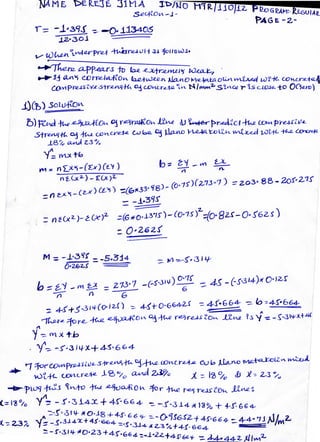 NAME DEREJE JIMA ID/NO MTR/110/12 PROGRAM REGULAR
Section-1- PAGE-2-
r = -1.395 / 12.301 = -0.113405
✓ when interpret this result as follows
➡ There appears to be extremely weak,
➡ If any correlation between Nano metakaolin mixed with concrete &
compressive strength of concrete in N/mm² since r is close to 0(zero)
1)(B) Solution
B) Find the equation of regression line
strength of the concrete cube of Nano Metakaolin mixed with the concrete
18% and 23%
Y = mx+b
m = nΣxy-(Σx)(Σy) / nΣ(x²)-Σ(x)² b = Σy/n - m Σx/n
= nΣxy-(Σx)(Σy) = (6×33.98)-(0.75)(273.7) = 203.88-205.275
= -1.395
= nΣ(x²)-Σ(x)² = (6×0.1375)-(0.75)² = (0.825-0.5625)
= 0.2625
M = -1.395 / 0.2625 = -5.314 = M = -5.314
b = Σy/n - m Σx/n = 273.7/6 - (-5.314) 0.75/6 = 45-(-5.314)×0.125
= 45+5.314(0.125) = 45+0.66425 = 45.664 = b = 45.664
Therefore the equation of the regression line is y = -5.314x+45
y = mx+b
Y = -5.314X+45.664
For compressive strength of the concrete cube Nano metakaolin mixed
with concrete 18% and 23% x = 18% & x = 23%
➡ plug this into the equation for the regression line:
x=18% Y = -5.314x+45.664 = -5.314×18%+45.664
= -5.314×0.18+45.664 = -0.95652+45.664 = 44.71 N/m²
x=23% Y = -5.314x+45.664 = -5.314×23%+45.664
= -5.314×0.23+45.664 = -1.22+45.664 = 44.442 N/m²